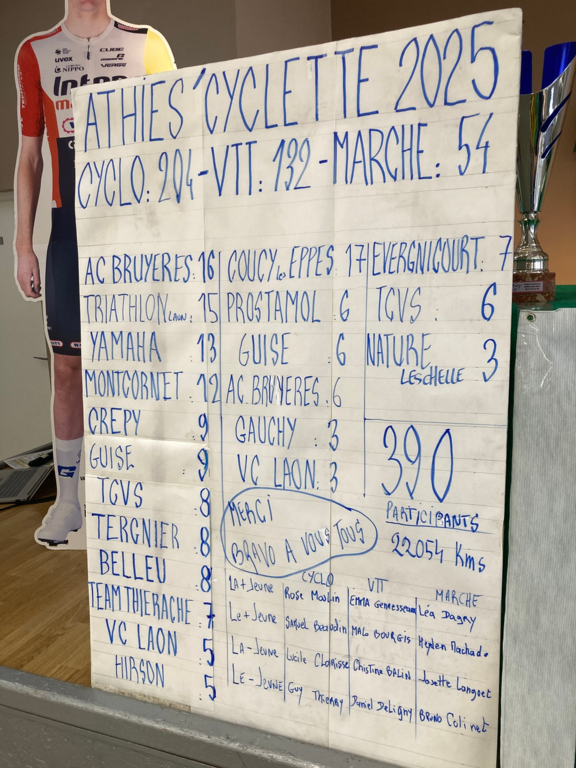 ATHIES'CYCLETTE 2025
CYCLO: 204-VTT: 132-MARCHE: 54
AC BRUYERES: 16
TRIATHLON LAON: 15
YAMAHA : 13
MONTCORNET : 12
CREPY : 9
GUISE : 9
TCVS : 8
TERGNIER : 8
BELLEU : 8
TEAM THIERACHE : 7
VC LAON : 5
HIRSON : 5
COUCY les EPPES. 17
PROSTAMOL : 6
GUISE : 6
AC. BRUYERES. 6
GAUCHY : 3
VC LAON. 3
EVERGNICOURT: 7
TCVS : 6
NATURE
LESCHELLE 3
390
PARTICIPANTS
22054 Kms
MERCI
BRAVO A VOUS TOUS
CYCLO VTT MARCHE
LA+Jeune Rose Moulin EMMA Léa Dagny
Le+Jeune Samuel Malo BOURGIS Hayden Machado
LA-Jeune Lucile Christine BALIN Josette Longuet
LE-JEUNE GUY THIERRY Daniel DeLigny BRUNO Colinet
uvox
CUBE
NIPPO
VERGE
Inter